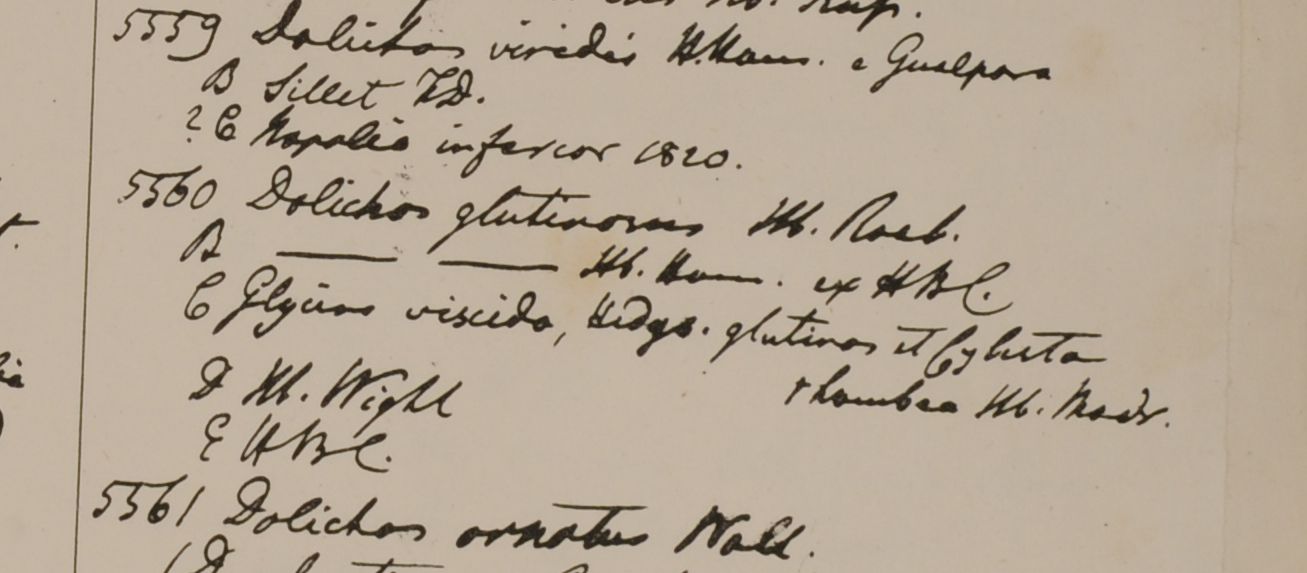 5559 Dolichos viridis H.Ham. e Gualpara
B Sillet F.D.
? C Napalia inferior 1820.
5560 Dolichos glutinosus Hb. Roxb.
B —— —— Hb. Ham. ex HBC.
C Glycine viscida, Hedys. glutinos et Cylista
rhombea Hb. Madr.
D Hb. Wight
E HBC.
5561 Dolichos ornatus Wall.